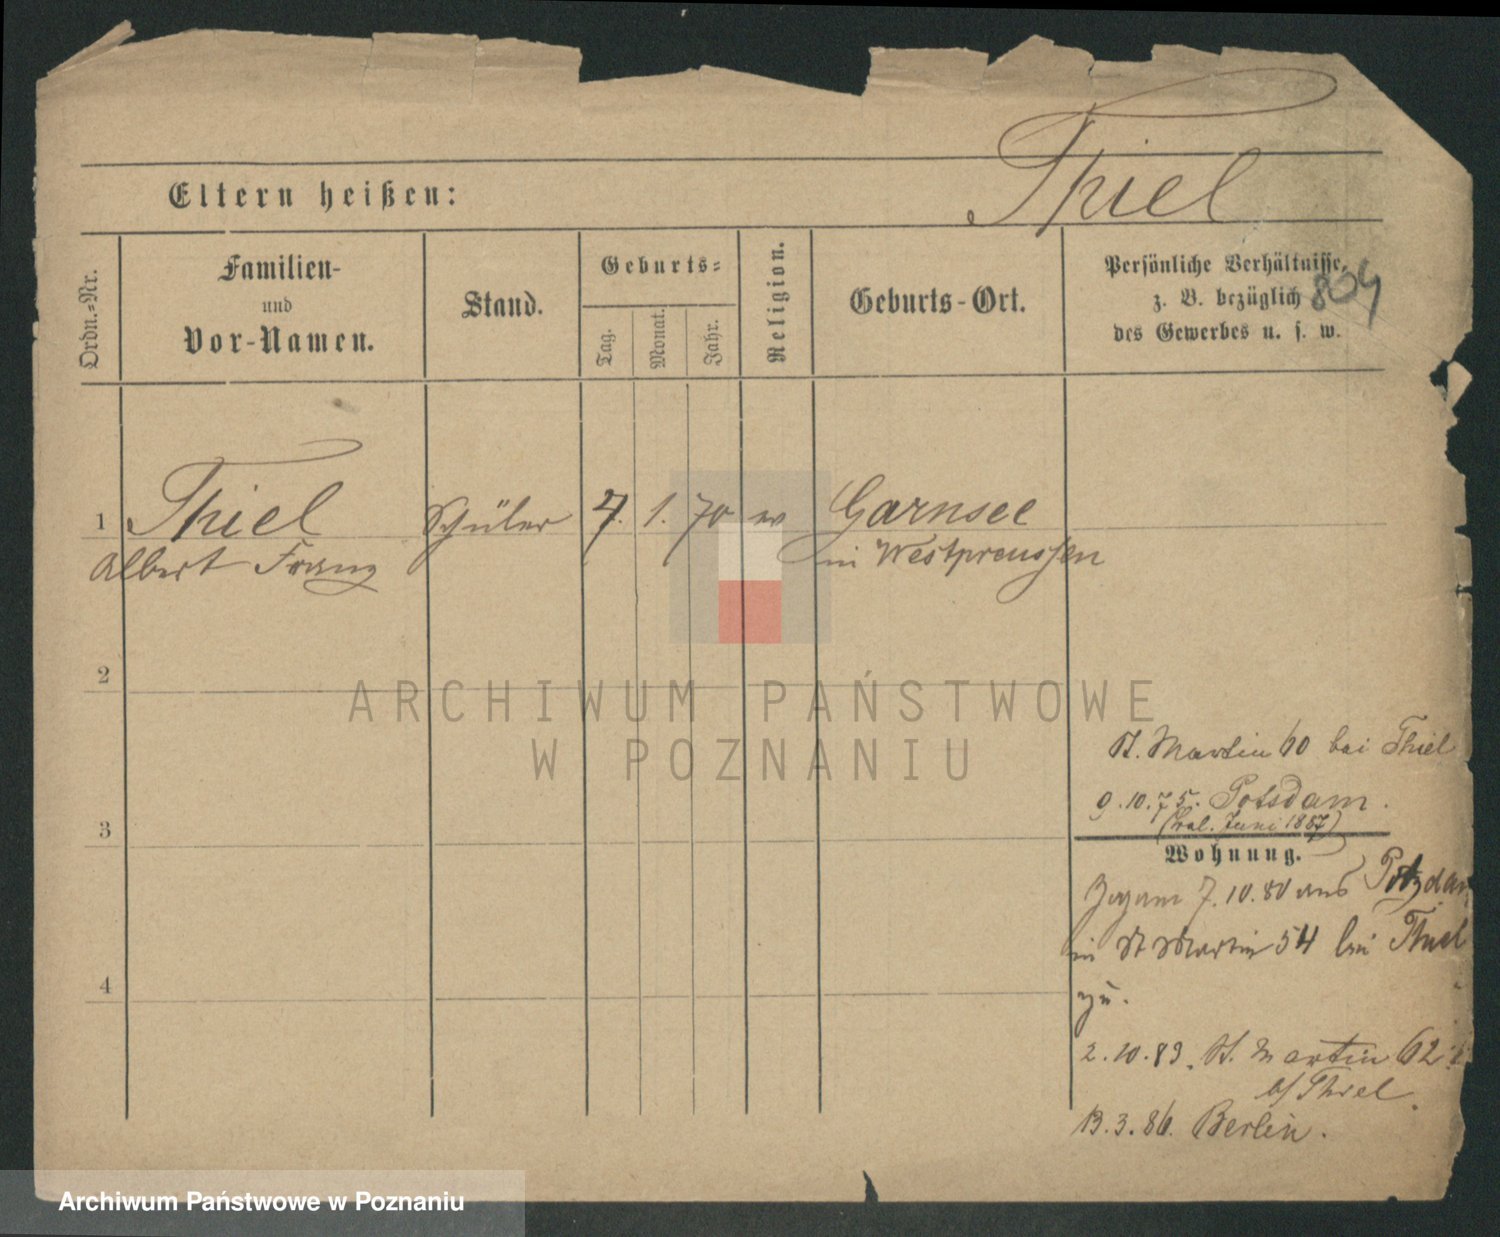 Thiel
Eltern heißen:
Ordn.-Nr.
Familien-
und
Vor-Namen.
Stand.
Geburts-
Tag.
Monat.
Jahr.
Religion.
Geburts-Ort.
Persönliche Verhältnisse,
z. B. bezüglich
des Gewerbes u. s. w.
804
1 Thiel Schüler 7. 1. 70 ev Garnsee
Albert Franz in Westpreussen
2
3
4
ARCHIWUM PAŃSTWOWE
W POZNANIU
St. Martin 60 bei Thiel
9.10.75. Potsdam.
Juni 1887)
Wohnung.
7.10.80 aus Potzdam
in St Martin 54 bei Thiel
zu.
2.10.83. St. Martin 62
b/ Thiel.
13.3.86. Berlin.
Archiwum Państwowe w Poznaniu